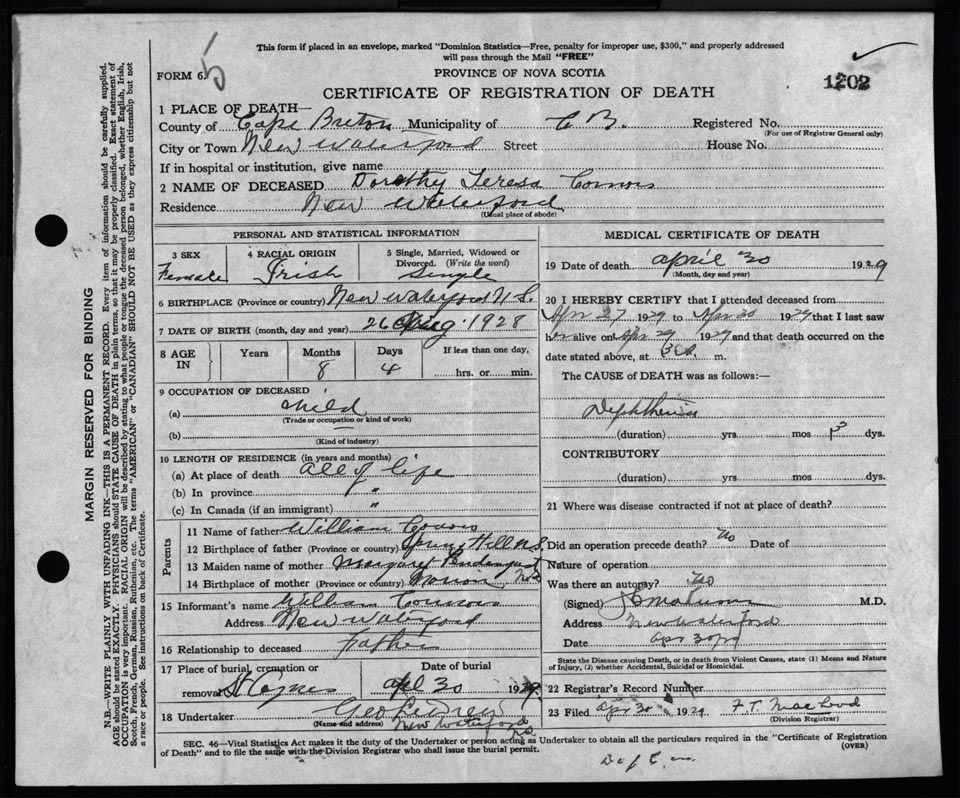 This form if placed in an envelope, marked "Dominion Statistics—Free, penalty for improper use, $300," and properly addressed
will pass through the Mail "FREE"
FORM 6. 5
PROVINCE OF NOVA SCOTIA
1202
CERTIFICATE OF REGISTRATION OF DEATH
1 PLACE OF DEATH—
County of Cape Breton Municipality of C B. Registered No.
(For use of Registrar General only)
City or Town New Waterford Street House No.
If in hospital or institution, give name
2 NAME OF DECEASED Dorothy Teresa Connors
Residence New Waterford
(Usual place of abode)
PERSONAL AND STATISTICAL INFORMATION
3 SEX 4 RACIAL ORIGIN 5 Single, Married, Widowed or
Divorced. (Write the word)
Female Irish Single
6 BIRTHPLACE (Province or country) New Waterford N.S.
7 DATE OF BIRTH (month, day and year) 26 Aug. 1928
8 AGE IN Years Months Days If less than one day,
8 4 hrs. or min.
9 OCCUPATION OF DECEASED
(a) child
(Trade or occupation or kind of work)
(b)
(Kind of industry)
10 LENGTH OF RESIDENCE (in years and months)
(a) At place of death all of life
(b) In province "
(c) In Canada (if an immigrant) "
Parents
11 Name of father William Connors
12 Birthplace of father (Province or country) Hill N.S.
13 Maiden name of mother Margaret
14 Birthplace of mother (Province or country) N.S.
15 Informant's name William Connors
Address New Waterford
16 Relationship to deceased Father
17 Place of burial, cremation or Date of burial
removal St. Agnes Apl 30 1929.
18 Undertaker Geo
(Name and address) New Waterford N.S.
MEDICAL CERTIFICATE OF DEATH
19 Date of death april 30 1929
(Month, day and year)
20 I HEREBY CERTIFY that I attended deceased from
Apr 27 1929 to Apr 30 1929 that I last saw
her alive on Apr 29 1929 and that death occurred on the
date stated above, at m.
The CAUSE of DEATH was as follows:—
Diphtheria
(duration) yrs mos 3 dys.
CONTRIBUTORY
(duration) yrs mos dys.
21 Where was disease contracted if not at place of death?
Did an operation precede death? No Date of
Nature of operation
Was there an autopsy? No
(Signed) M.D.
Address New Waterford
Date apr 30/29
State the Disease causing Death, or in death from Violent Causes, state (1) Means and Nature
of Injury, (2) whether Accidental, Suicidal or Homicidal.
22 Registrar's Record Number
23 Filed apr 30 1929 F. T. MacLeod
(Division Registrar)
SEC. 46—Vital Statistics Act makes it the duty of the Undertaker or person acting as Undertaker to obtain all the particulars required in the "Certificate of Registration
of Death" and to file the same with the Division Registrar who shall issue the burial permit. (OVER)
MARGIN RESERVED FOR BINDING
N.B.—WRITE PLAINLY WITH UNFADING INK—THIS IS A PERMANENT RECORD. Every item of information should be carefully supplied.
AGE should be stated EXACTLY. PHYSICIANS should STATE CAUSE OF DEATH in plain terms, so that it may be properly classified. Exact statement of
OCCUPATION is very important. RACIAL ORIGIN will be described by stating to what people or tongue the deceased person belonged, whether English, Irish,
Scotch, French, German, Russian, Ruthenian, etc. The terms "AMERICAN" or "CANADIAN" SHOULD NOT BE USED as they express citizenship but not
a race or people. See instructions on back of Certificate.